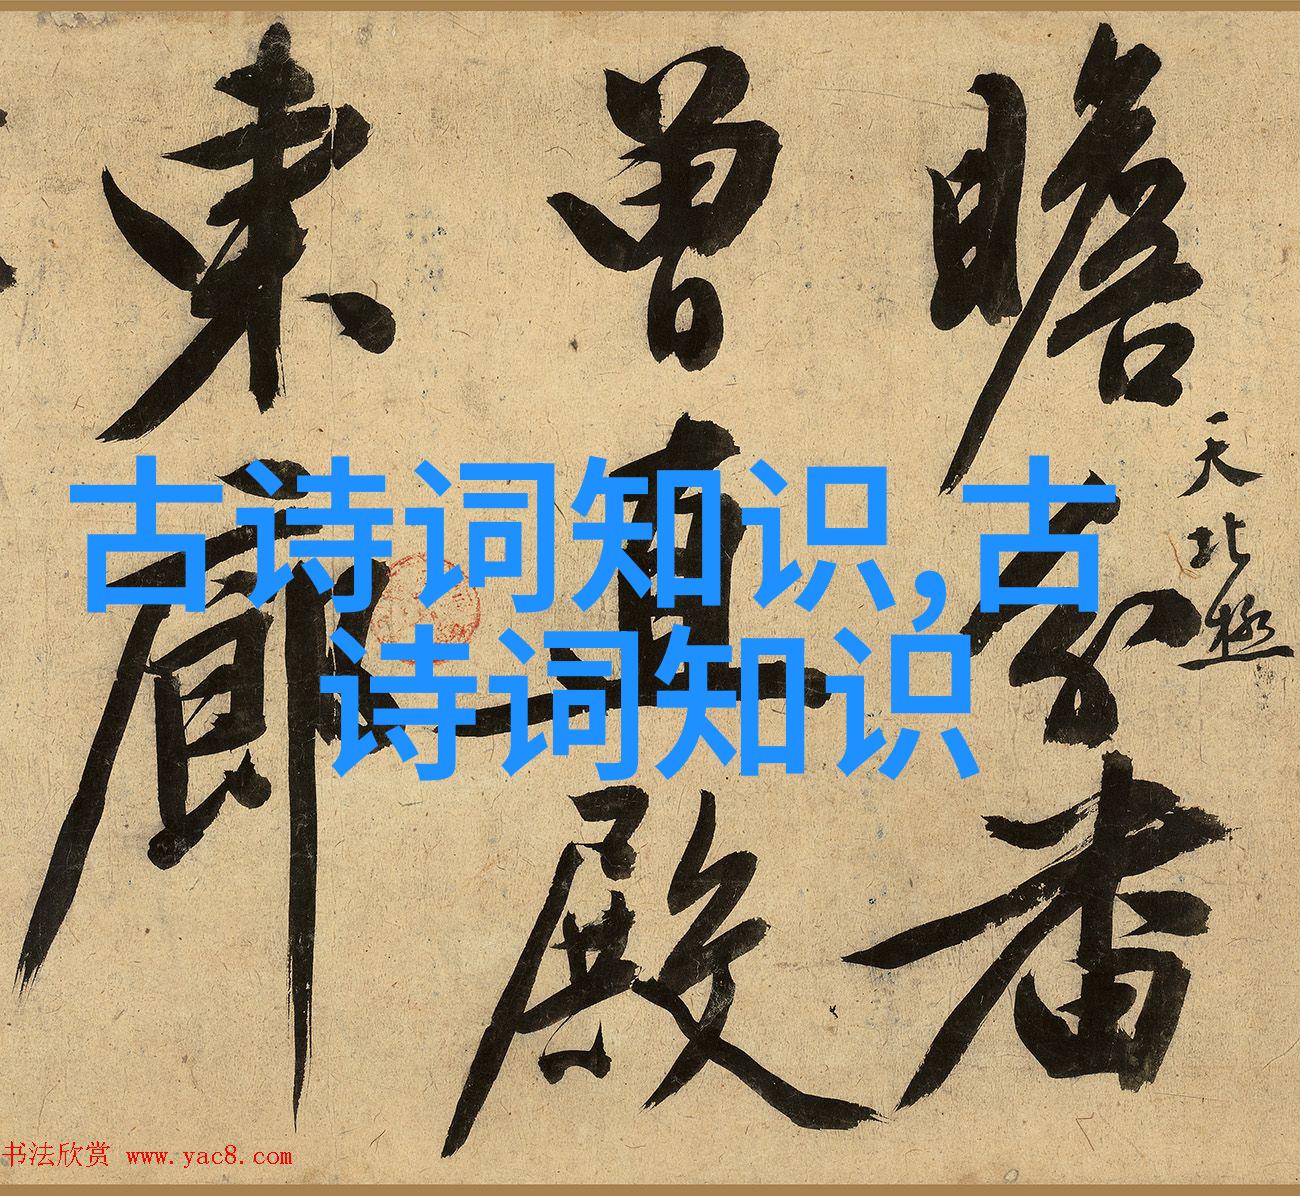 古诗词知识,古
诗词知识
天北極
瞻
曾直殿
東廊
书法欣赏 www.yac8.com